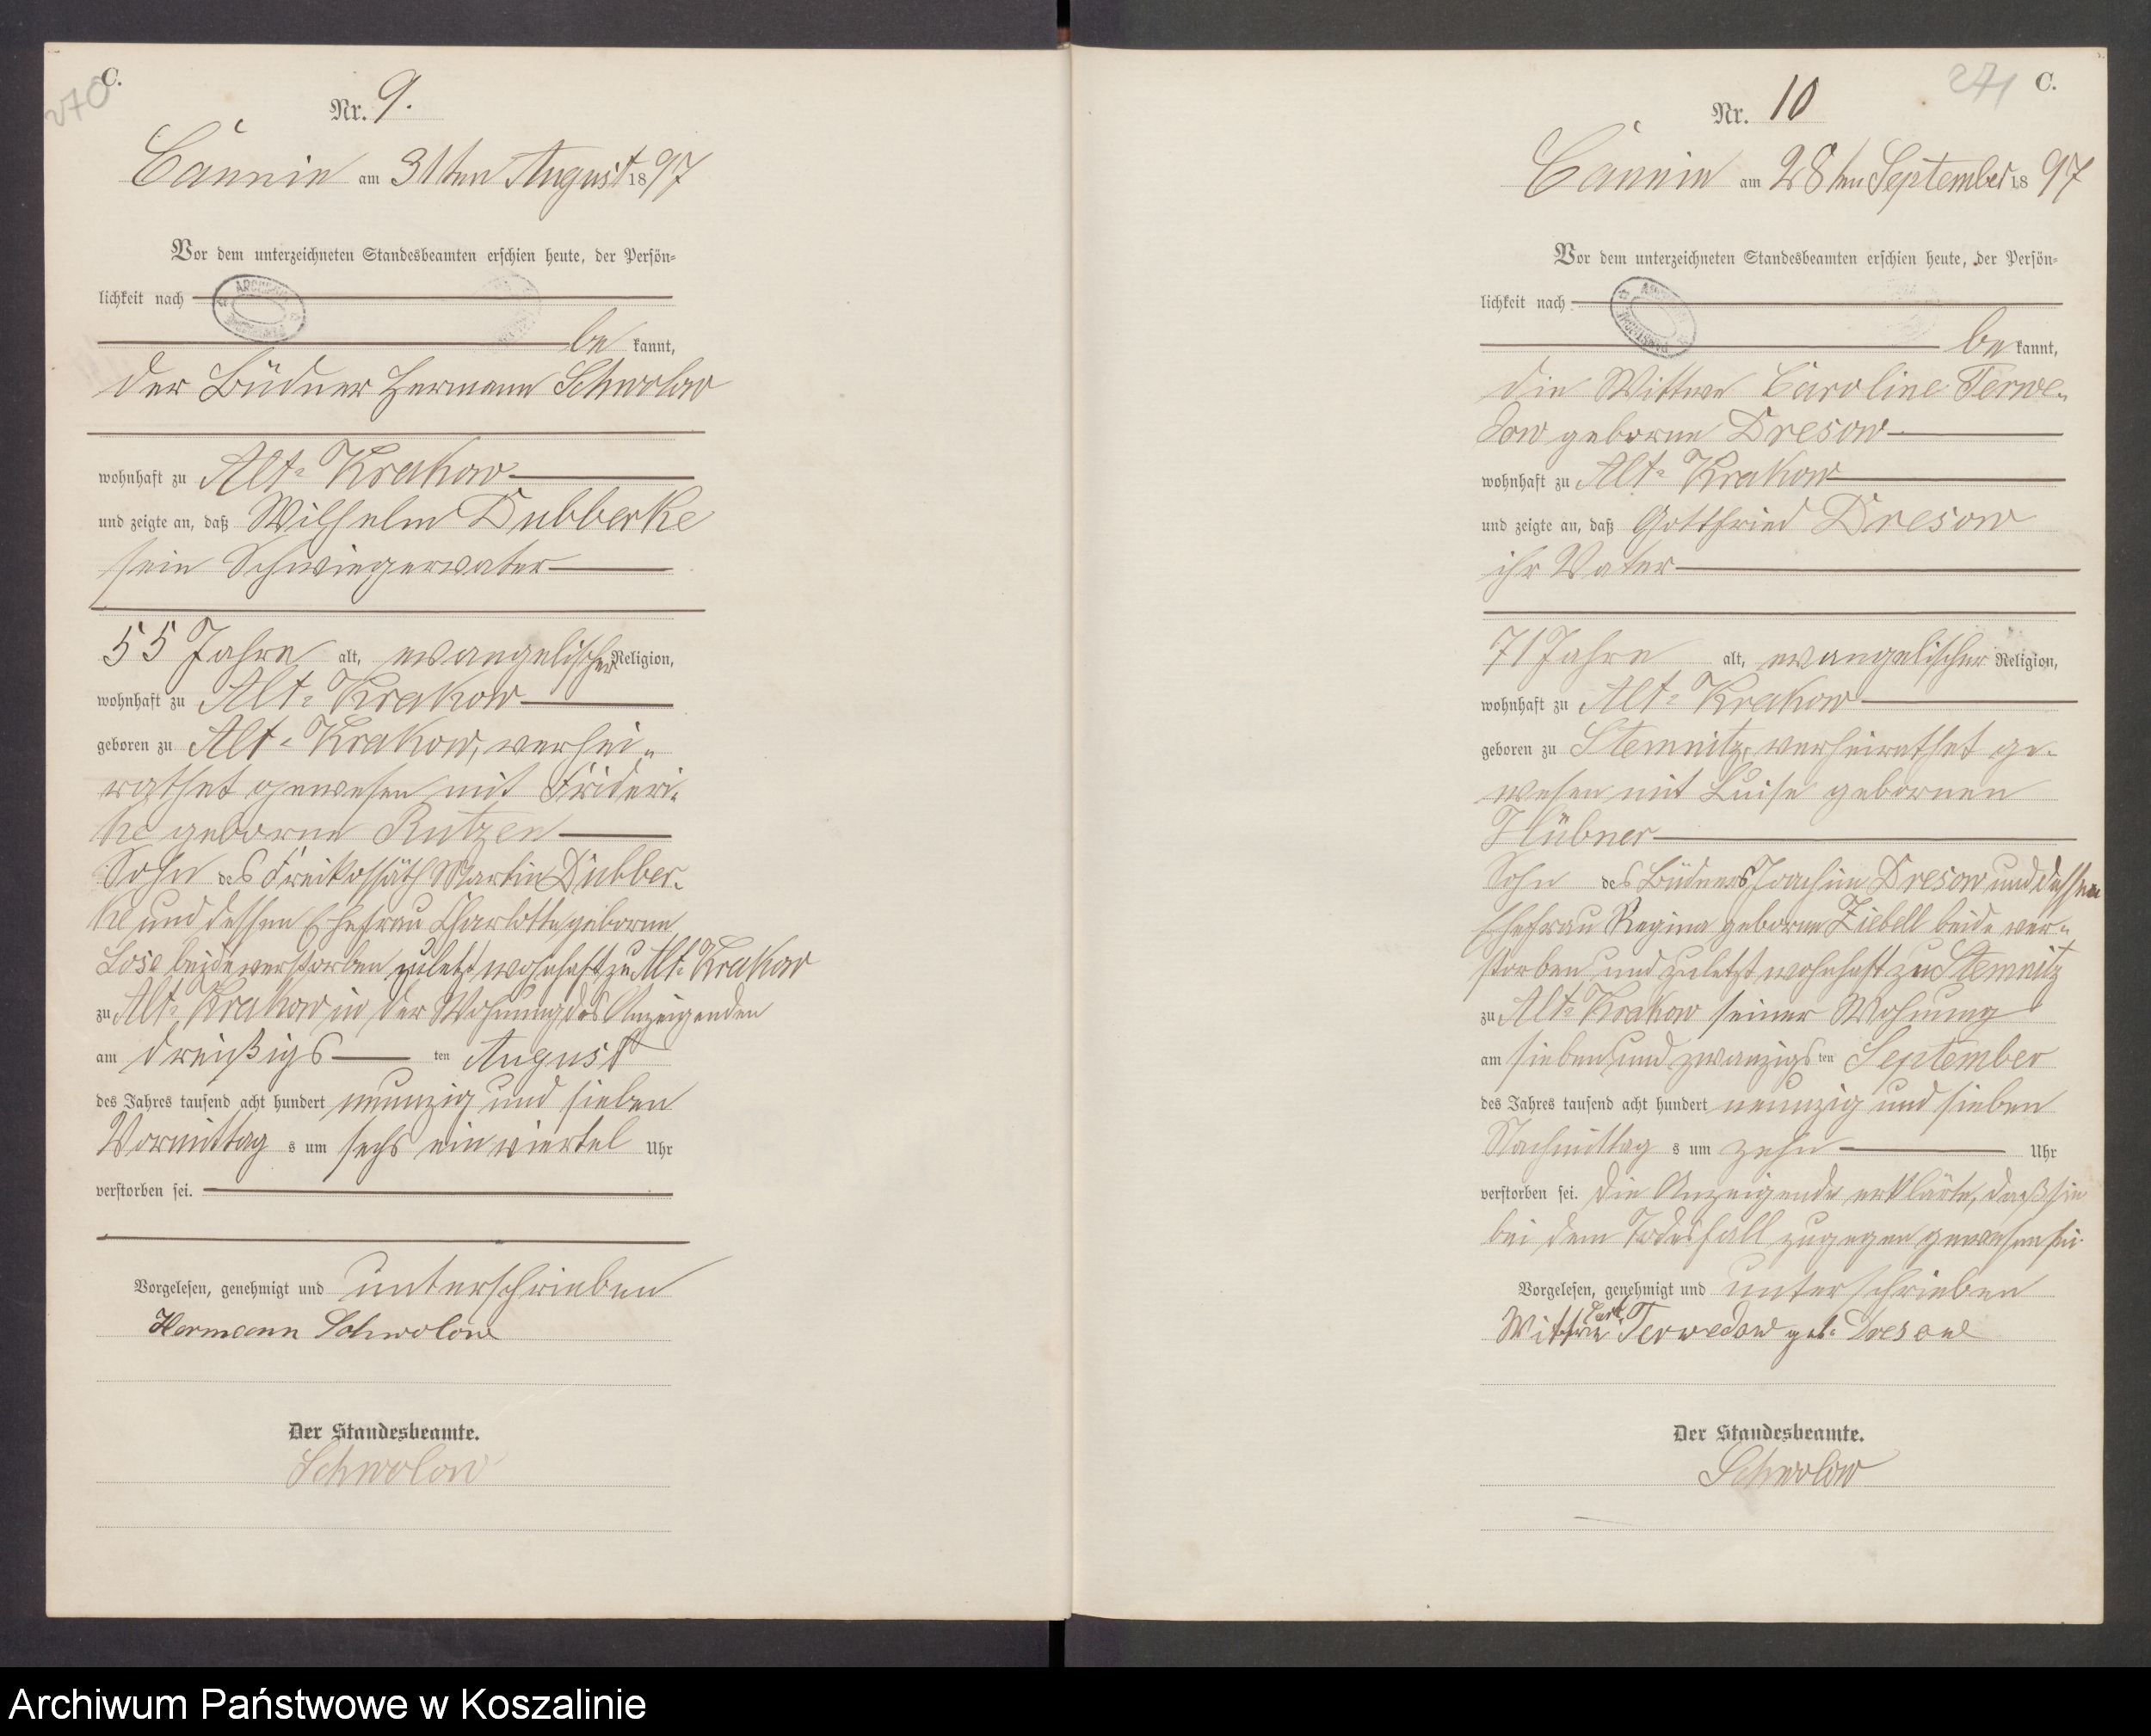 270
C.
Nr. 9.
Cannin am 31ten August 1897
Vor dem unterzeichneten Standesbeamten erschien heute, der Persön-
lichkeit nach
be kannt,
der Büdner Hermann Schwolow
wohnhaft zu Alt-Krakow
und zeigte an, daß Wilhelm Dubberke
sein Schwiegervater
55 Jahre alt, evangelischer Religion,
wohnhaft zu Alt-Krakow
geboren zu Alt-Krakow, verhei-
rathet gewesen mit Frideri-
ke geborne Rutzen
Sohn des Freikossäth Martin Dubber-
ke und dessen Ehefrau Charlotte geborne
Lose beide verstorben zuletzt wohnhaft zu Alt-Krakow
zu Alt-Krakow in der Wohnung des Anzeigenden
am dreißigs ten August
des Jahres tausend acht hundert neunzig und sieben
Vormittag s um sechs ein viertel Uhr
verstorben sei.
Vorgelesen, genehmigt und unterschrieben
Hermann Schwolow
Der Standesbeamte.
Schwolow
271
C.
Nr. 10
Cannin am 28ten September 1897
Vor dem unterzeichneten Standesbeamten erschien heute, der Persön-
lichkeit nach
be kannt,
die Wittwe Caroline Terwe-
dow geborne Dresow
wohnhaft zu Alt-Krakow
und zeigte an, daß Gottfried Dresow
ihr Vater
71 Jahre alt, evangelischer Religion,
wohnhaft zu Alt-Krakow
geboren zu Stemnitz, verheirathet ge-
wesen mit Luise gebornen
Hübner
Sohn des Büdners Joachim Dresow und dessen
Ehefrau Regina geborne Ziebell beide ver-
storben und zuletzt wohnhaft zu Stemnitz
zu Alt-Krakow seiner Wohnung
am sieben und zwanzigs ten September
des Jahres tausend acht hundert neunzig und sieben
Nachmittag s um zehn Uhr
verstorben sei. Die Anzeigende erklärte, daß sie
bei dem Todesfall zugegen gewesen sei.
Vorgelesen, genehmigt und unterschrieben
Wittwe Terwedow geb. Dresow
Der Standesbeamte.
Schwolow
Archiwum Państwowe w Koszalinie